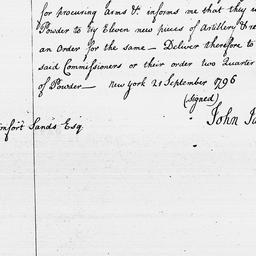 for procuring Arms &c. informs me that they
Powder to try Eleven new pieces of Artillery &
an Order for the same — Deliver therefore to
said Commissioners or their order two Quarter
of Powder — New York 21 September 1796
(signed)
John
Sands Esq